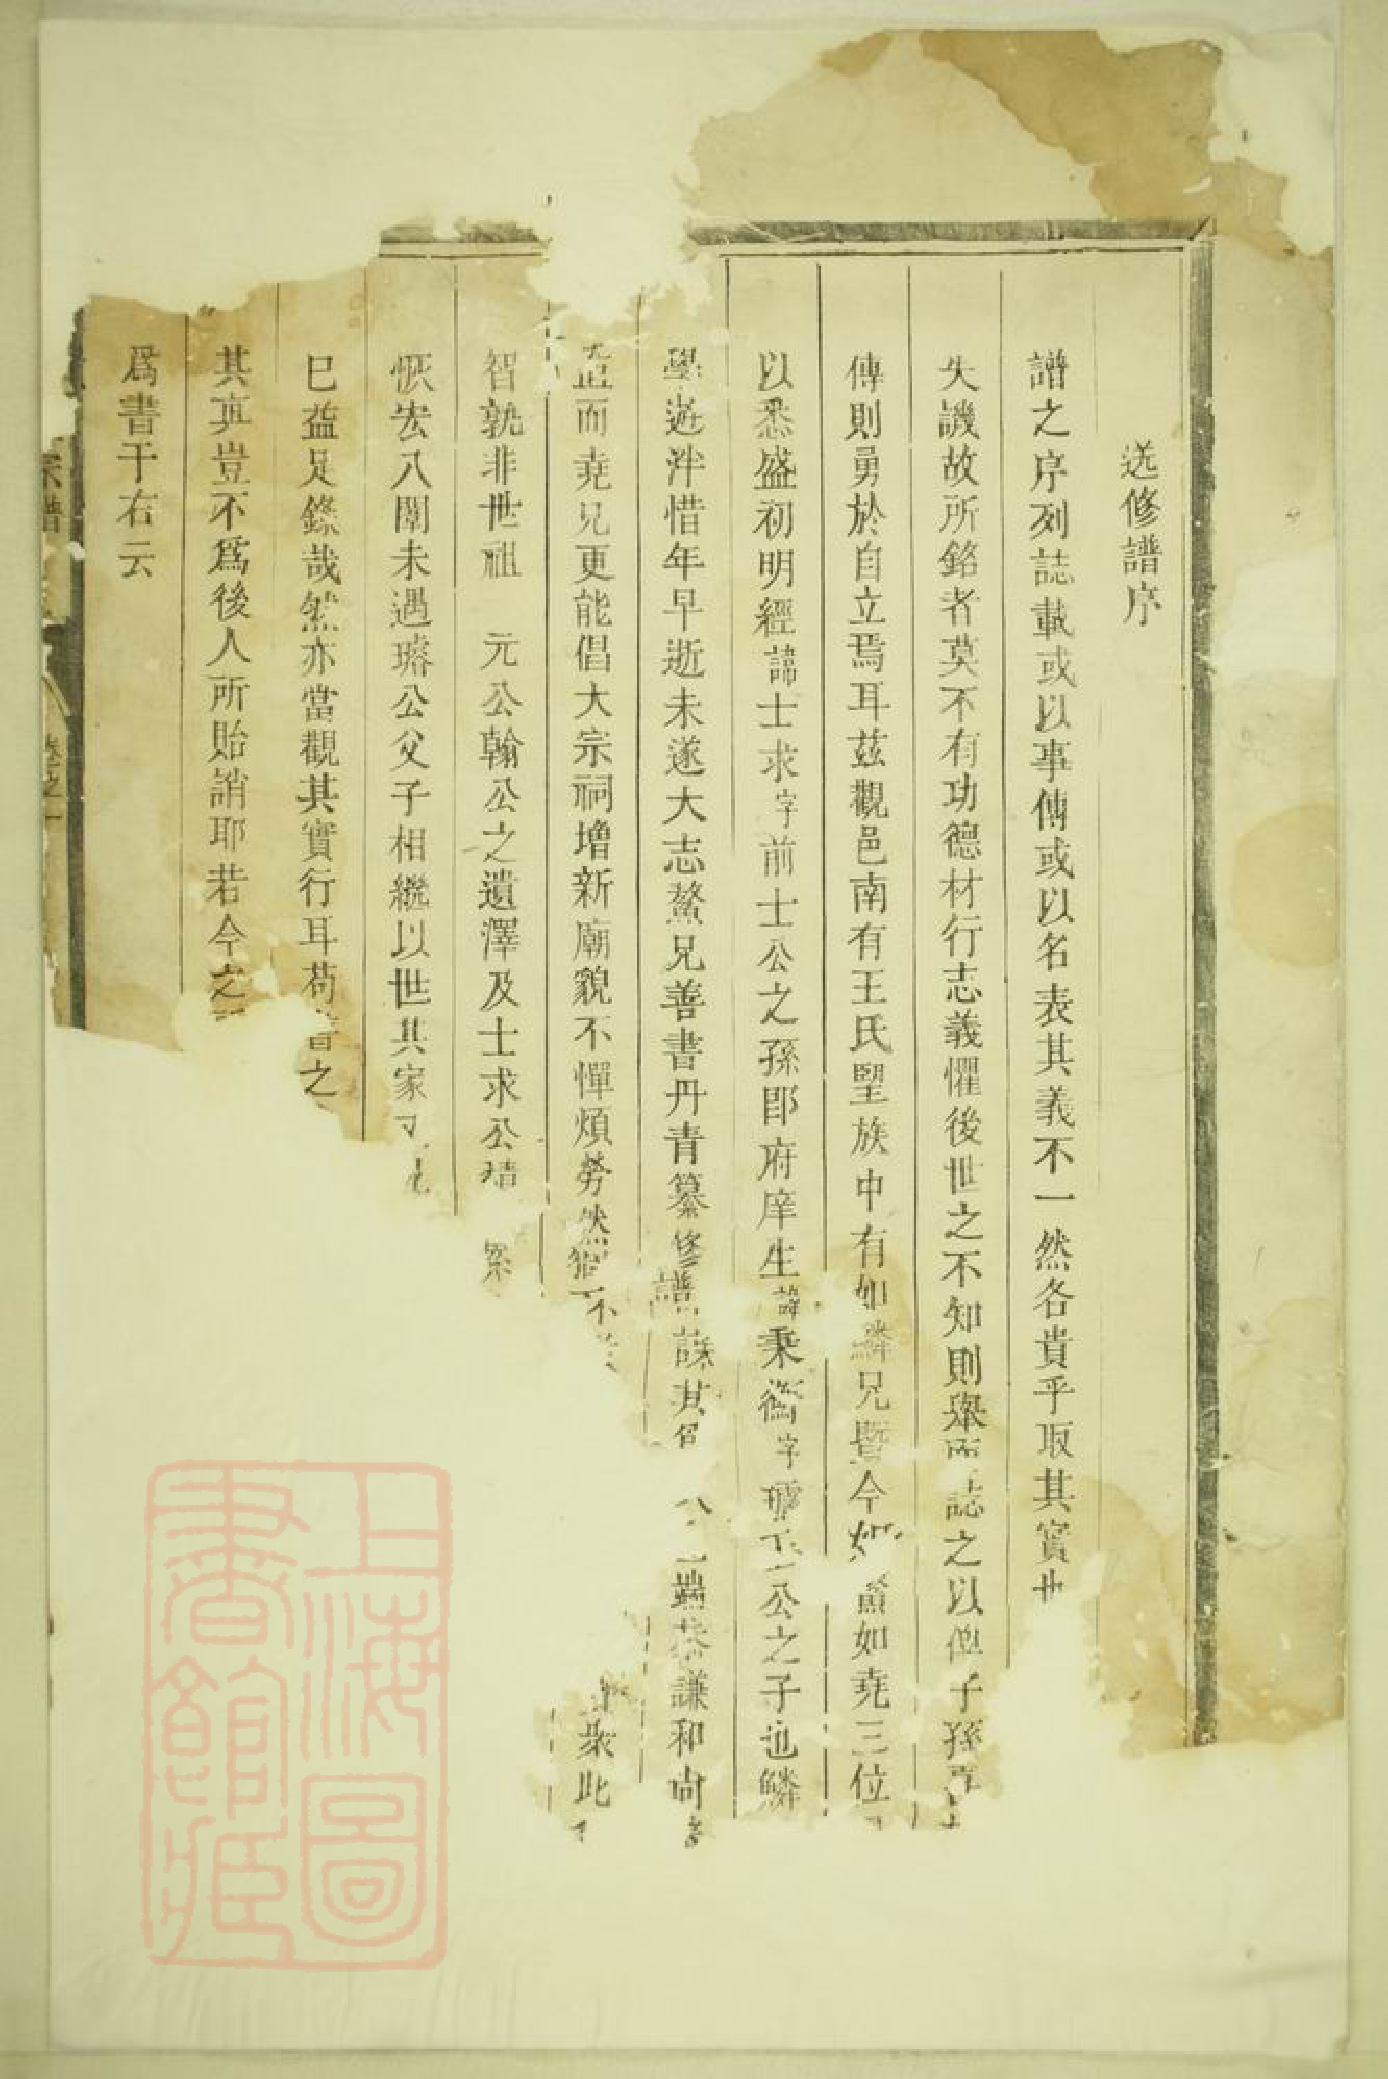 迭修譜序
譜之序列誌載或以事傳或以名表其義不一然各貴乎取其實也
失譏故所銘者莫不有功德材行志義懼後世之不知則舉而誌之以俾子孫
傳則勇於自立焉耳茲觀邑南有王氏堅族中有如鱗兄暨今如鰲如堯三位
以悉盛初明經諱士求字前士公之孫郎府庠生諱秉衡字公之子也鱗
學遊泮惜年早逝未遂大志鰲兄善書丹青纂修譜其端恭謙和尚
而堯兄更能倡大宗祠增新廟貌不憚煩勞然猶不衆此
智孰非世祖 元公翰公之遺澤及士求公積 累
恢宏八闈未遇璿公父子相繼以世其家
已益足錄哉然亦當觀其實行耳苟書之
其真豈不爲後人所貽誚耶若今之
爲書于右云
宗譜 卷之一
上海圖書館藏